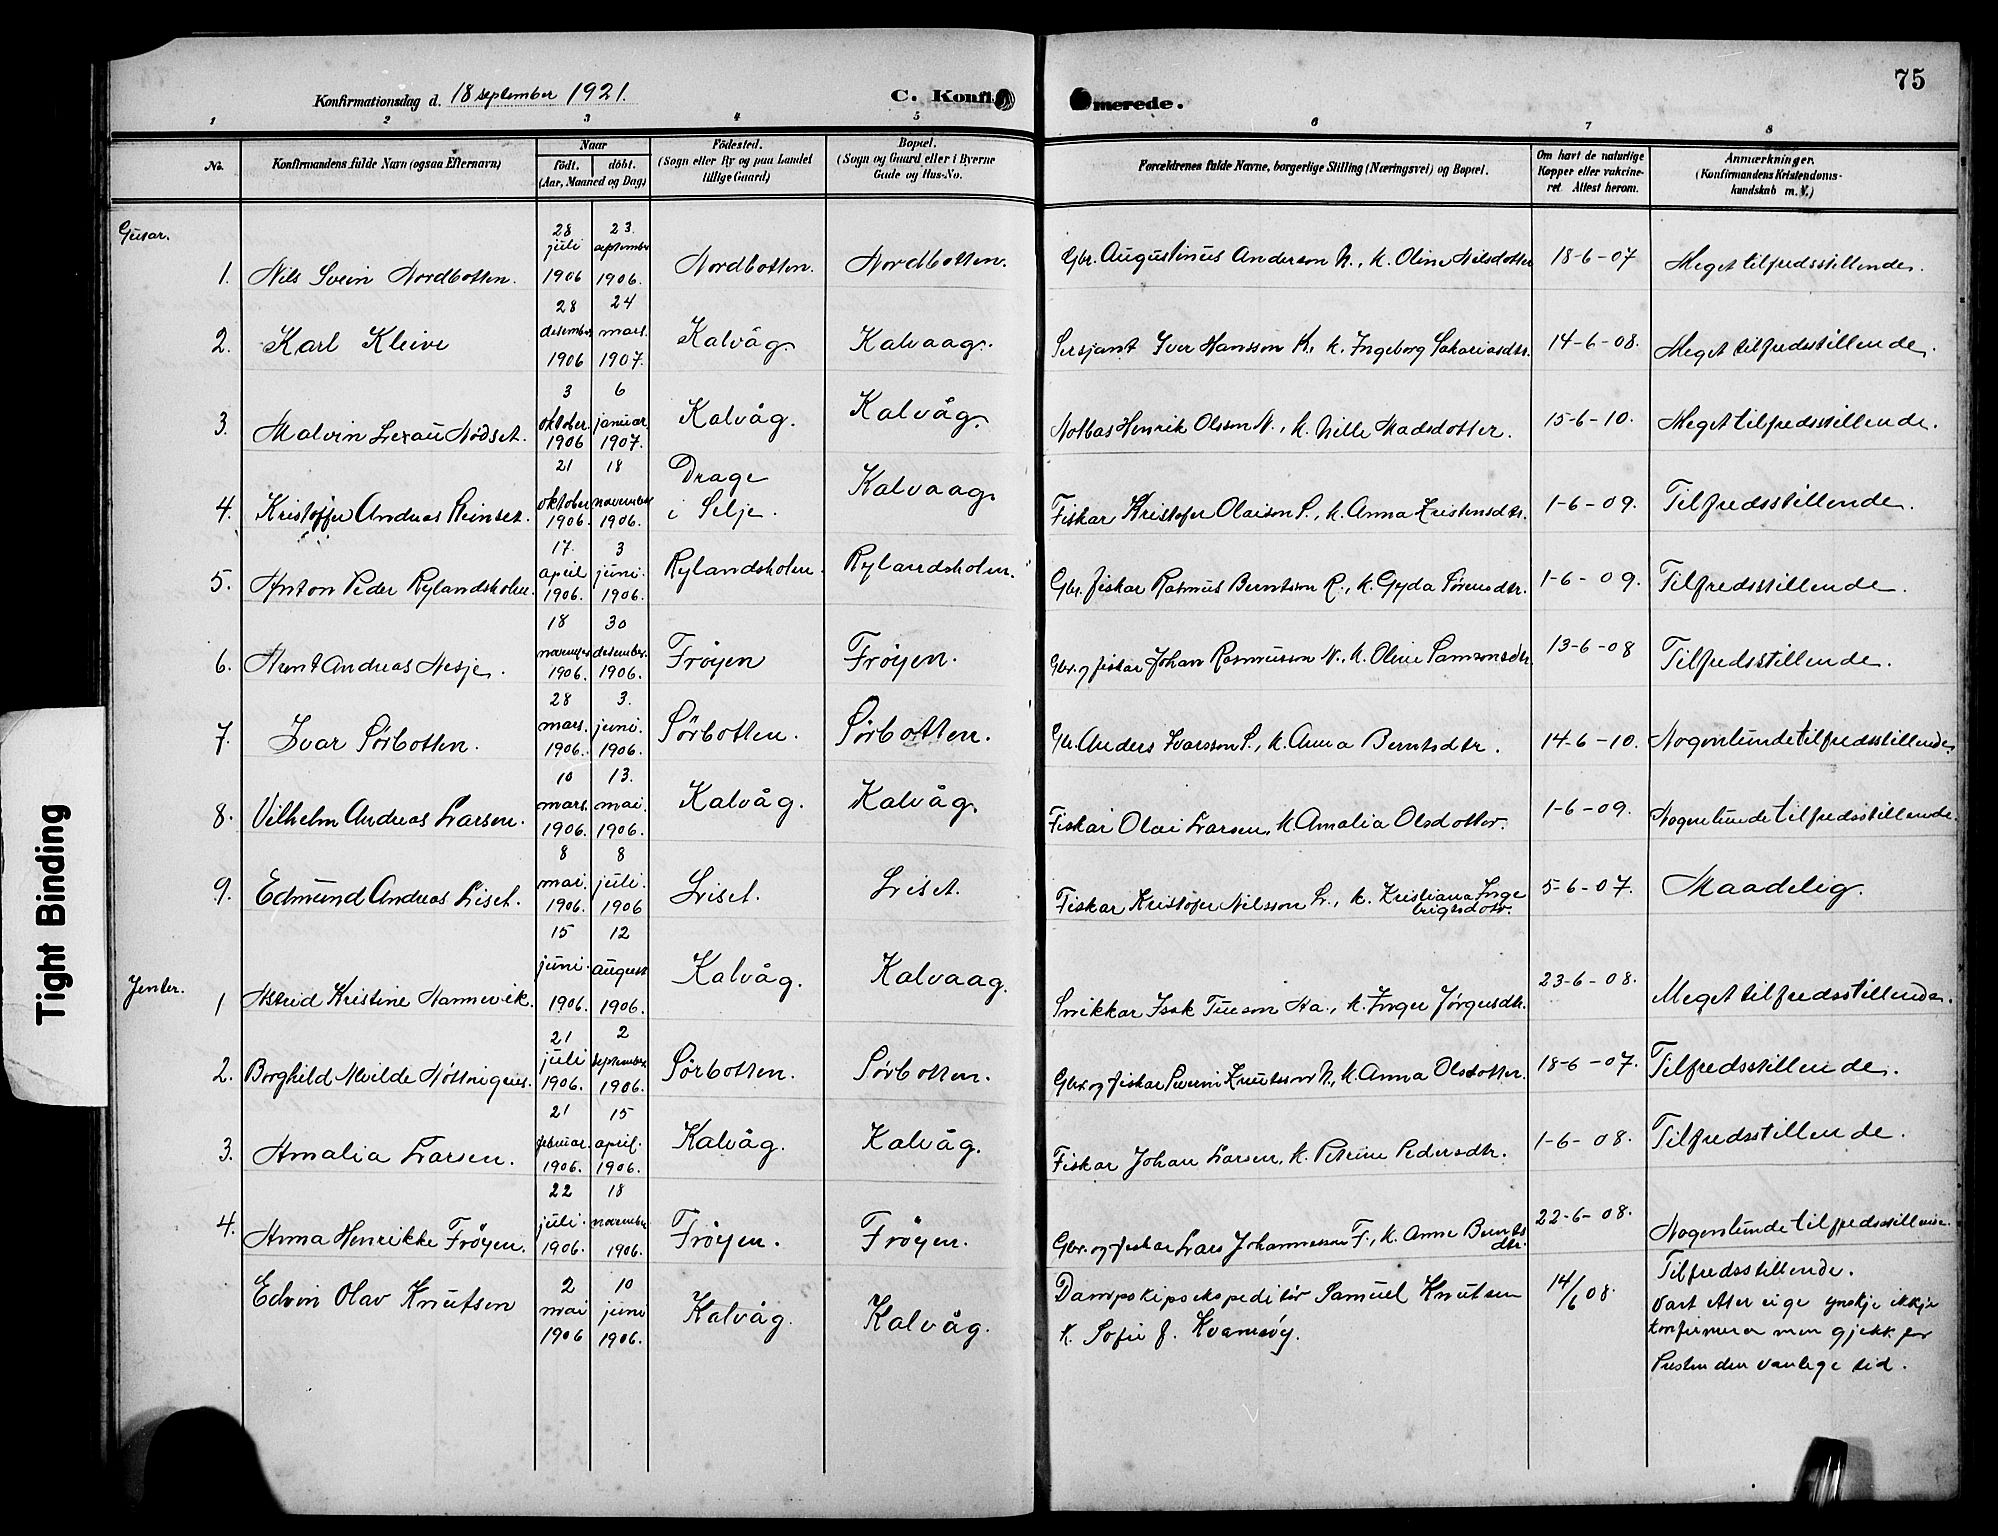 75
Konfirmationsdag d. 18 september 1921.
C. Konfi
merede.
1 2 3 4 5 6 7 8
No.
Konfirmandens fulde Navn (ogsaa Efternavn)
Naar
født. døbt.
(Aar, Maaned og Dag)
Fødested.
(Sogn eller By og paa Landet
tillige Gaard)
Bopæl.
(Sogn og Gaard eller i Byerne
Gade og Hus-No.
Forældrenes fulde Navne, borgerlige Stilling (Næringsvei) og Bopæl.
Om havt de naturlige
Kopper eller vakcine-
ret. Attest herom.
Anmærkninger.
(Konfirmandens Kristendoms-
kundskab m. V.)
Gutar.
1. Nils Svein Nordbotten. 28 juli 1906 23. september 1906. Nordbotten. Nordbotten. Gbr. Augustinus Anderson N., K. Oline Nilsdotter 18-6-07 Meget tilfredsstillende.
2. Karl Kleive 28 desember 1906 24 mars. 1907. Kalvåg. Kalvaag. Sersjant Iver Hansson K., K. Ingeborg Sakariasdtr. 14-6-08. Meget tilfredsstillende.
3. Malvin Lexau Nødset. 3 oktober. 1906 6 januar. 1907. Kalvåg. Kalvåg. Notbas Henrik Olsson N., K. Nille Madsdotter. 15-6-10. Meget tilfredsstillende.
4. Kristoffer Andreas 21 oktober 1906. 18 november 1906. Drage i Selje. Kalvaag. Fiskar Kristofer Olaison S., K. Anna Kristensdtr. 1-6-09. Tilfredsstillende.
5. Anton Peder Rylandsholm. 17. april 1906. 3 juni. 1906. Rylandsholm. Rylandsholm. Gbr. fiskar Rasmus Berntsson R., K. Gyda Sørensdtr. 1-6-09. Tilfredsstillende.
6. Andreas Nesje. 18 november 1906. 30 desember. 1906. Frøyen Frøyen. Gbr. og fiskar Johan Rasmusson N., K. Oline Samsonsdtr. 13-6-08 Tilfredsstillende.
7. Ivar Sørbotten. 28 mars. 1906. 3. juni. 1906. Sørbotten. Sørbotten. Gbr. Anders Ivarsson S., K. Anna Berntsdtr. 14-6-10. Nogenlunde tilfredsstillende.
8. Vilhelm Andreas Larsen. 10 mars. 1906. 13. mai. 1906. Kalvåg. Kalvåg. Fiskar Olai Larsen, K. Amalia Olsdotter. 1-6-09. Nogenlunde tilfredsstillende.
9. Edmund Andreas Liset. 8 mai. 1906. 8 juli. 1906 Liset. Liset. Fiskar Kristofer Nilsson L., K. Kristiana Inge
brigtsdotr. 5-6-07. Maadelig.
Jenter.
1 Astrid Kristine Hammevik. 15 juni. 1906. 12 august 1906. Kalvåg. Kalvaag. Snikkar Isak Tueson Ha., K. Inger Jørgensdtr. 23-6-08. Meget tilfredsstillende.
2. Borghild Alvilde 21 juli 1906. 2 september 1906. Sørbotten. Sørbotten. Gbr. og fiskar Severin Knutsson N., K. Anna Olsdotter. 18-6-07. Tilfredsstillende.
3. Amalia Larsen. 21 februar. 1906. 15 april. 1906. Kalvåg. Kalvåg. Fiskar Johan Larsen, K. Petrine Pedersdtr. 1-6-08. Tilfredsstillende.
4. Anna Henrikke Frøyen. 22 juli. 1906. 18 november 1906. Frøyen. Frøyen. Gbr. og fiskar Lars Johannesson F., K. Anne Bernts
dtr. 22-6-08. Nogenlunde tilfredsstillende.
Edvin Olav Knutsen 2 mai 1906 10 juni 1906. Kalvåg. Kalvåg. Dampskipsekspeditør Samuel Knutsen
K. Sofie f. Kvamsøy. 14/6 08. Tilfredsstillende.
Vart etter eige ynskje ikkje
konfirmera men gjekk for
Presten den vanlege tid.
Tight Binding